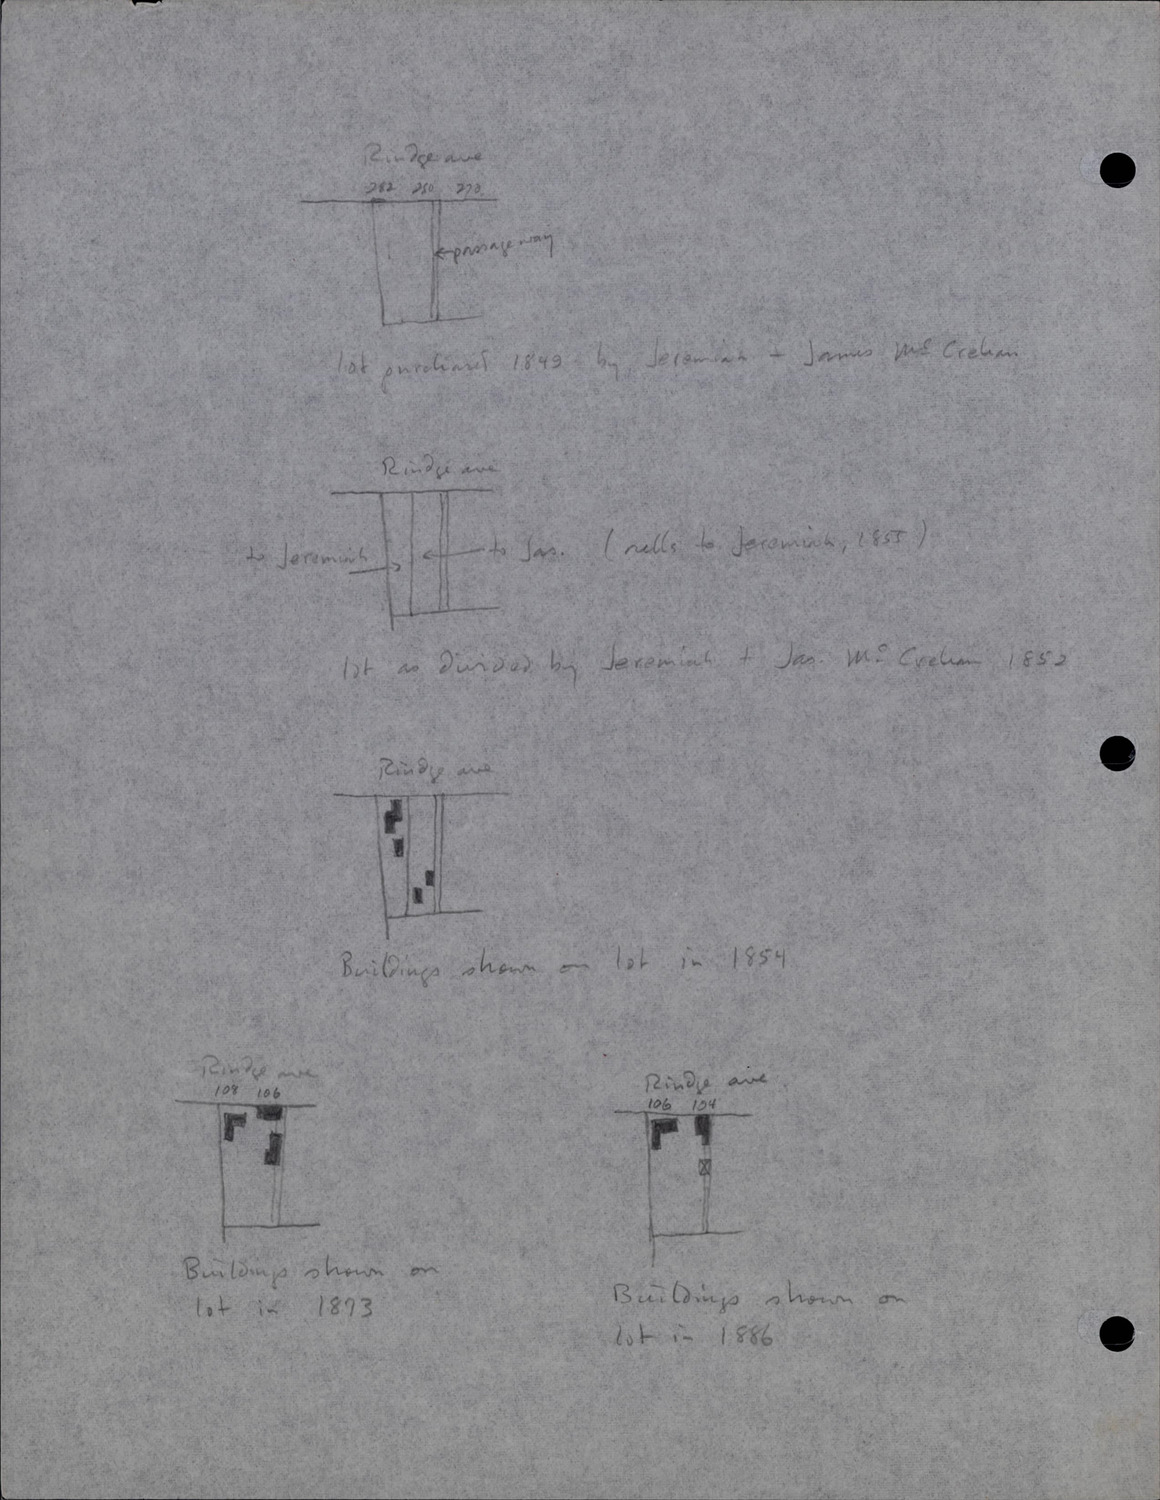 Rindge ave
282 280 270
← passageway
lot purchased 1849 by Jeremiah + James Mc Crehan
Rindge ave
to Jeremiah → ← to Jas. (sells to Jeremiah, 1855)
lot as divided by Jeremiah + Jas. Mc Crehan 1852
Rindge ave
Buildings shown on lot in 1854
Rindge ave
108 106
Buildings shown on
lot in 1873
Rindge ave
106 104
Buildings shown on
lot in 1886